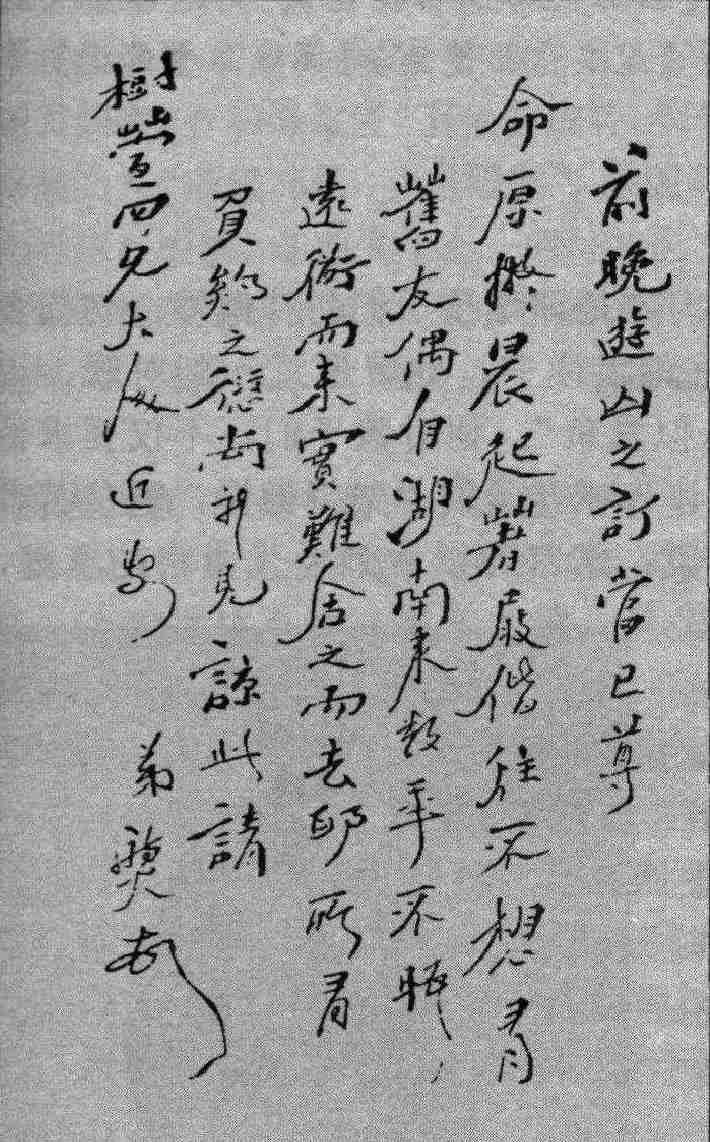 前晚遊山之訂當已尊
命原擬晨起著屐偕往不想有
舊友偶自湖南來數年不晤
遠衝而來實難舍之而去即所有
負約之愆尚祈見諒此請
樹萱四兄大人近安 弟燮頓